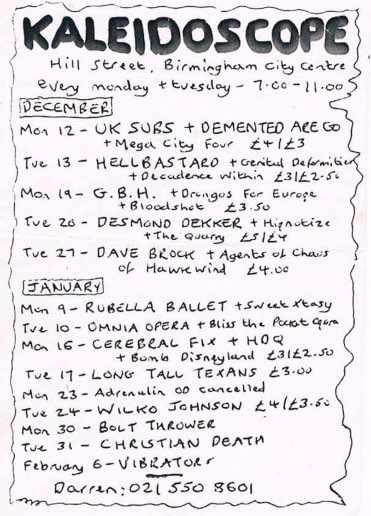 KALEIDOSCOPE
Hill Street, Birmingham City Centre
every monday + tuesday - 7.00 - 11.00
DECEMBER
Mon 12 - UK SUBS + DEMENTED ARE GO
+ Mega City Four £4/£3
Tue 13 - HELLBASTARD + Genital Deformities
+ Decadence Within £3/£2.50
Mon 19 - G.B.H. + Drongos For Europe
+ Bloodshot £3.50
Tue 20 - DESMOND DEKKER + Hipnotize
+ The Quarry £5/£4
Tue 27 - DAVE BROCK + Agents of Chaos
of Hawkwind £4.00
JANUARY
Mon 9 - RUBELLA BALLET + Sweet Xtasy
Tue 10 - OMNIA OPERA + Bliss the Pocket Opera
Mon 16 - CEREBRAL FIX + HDQ
+ Bomb Disneyland £3/£2.50
Tue 17 - LONG TALL TEXANS £3.00
Mon 23 - Adrenalin OD cancelled
Tue 24 - WILKO JOHNSON £4/£3.50
Mon 30 - BOLT THROWER
Tue 31 - CHRISTIAN DEATH
February 6 - VIBRATORS
Darren: 021 550 8601